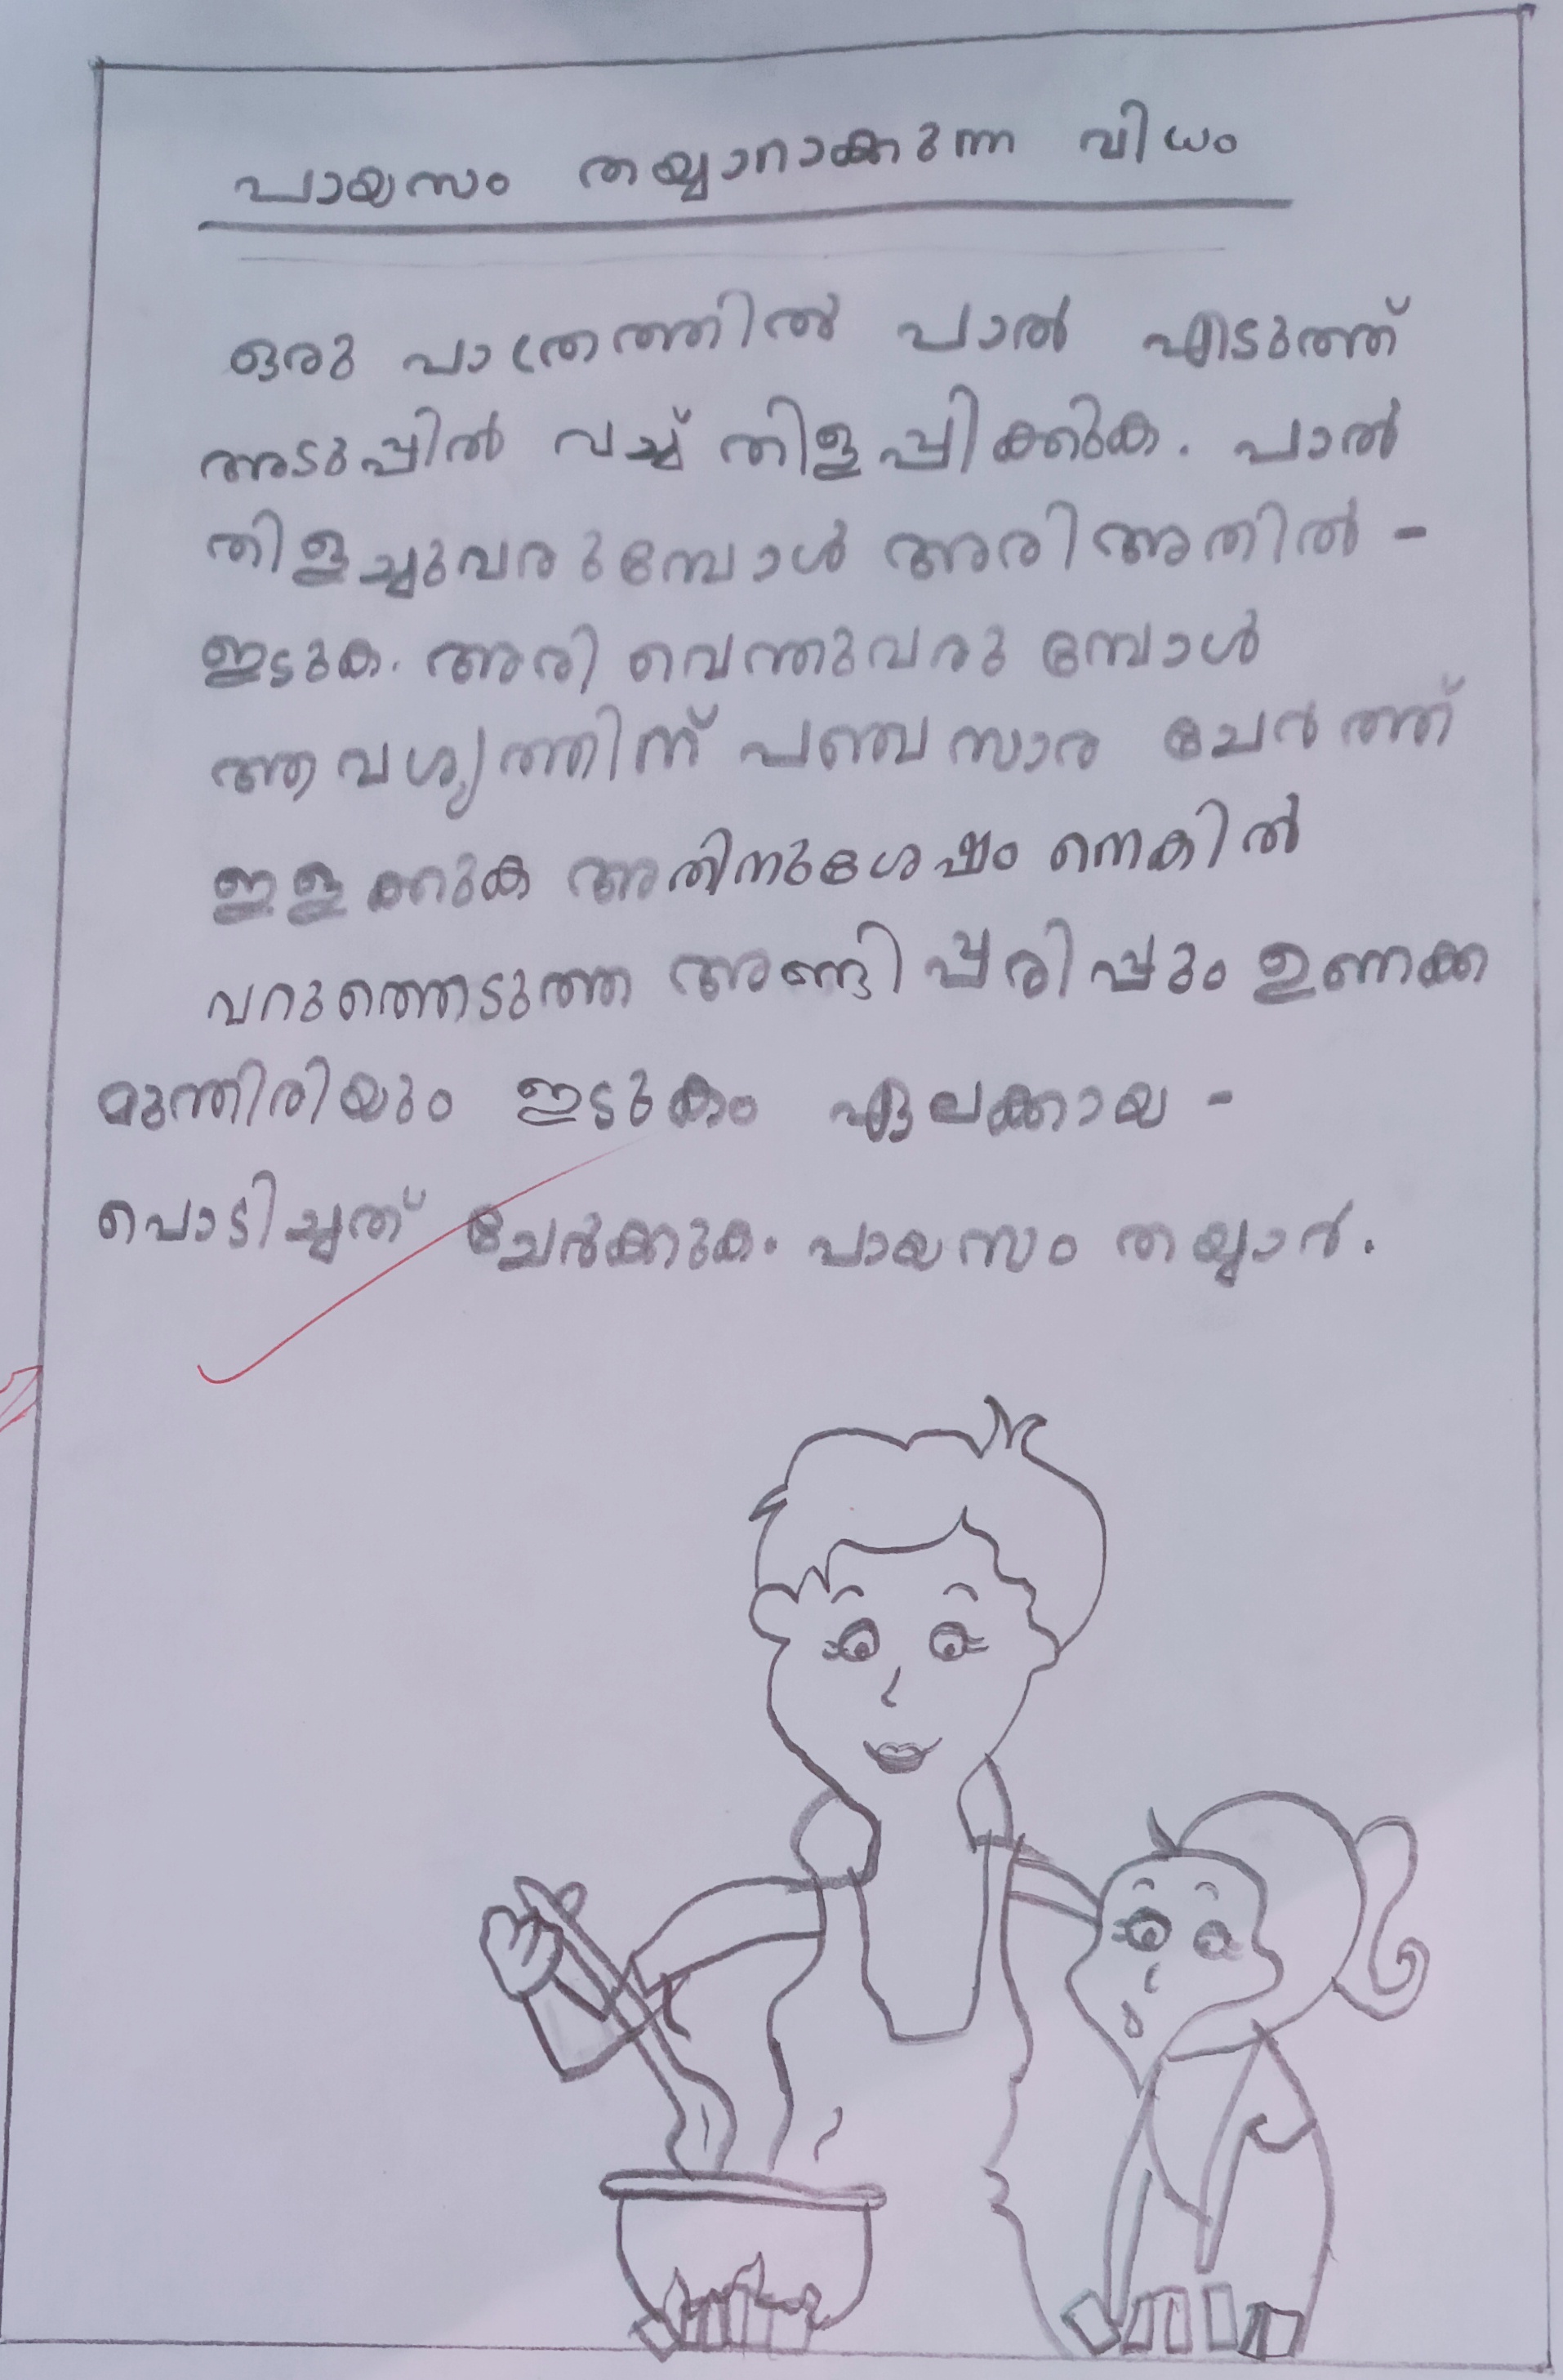 പായസം തയ്യാറാക്കുന്ന വിധം
ഒരു പാത്രത്തിൽ പാൽ എടുത്ത്
അടുപ്പിൽ വച്ച് തിളപ്പിക്കുക. പാൽ
തിളച്ചുവരുമ്പോൾ അരി അതിൽ -
ഇടുക. അരി വെന്തുവരുമ്പോൾ
ആവശ്യത്തിന് പഞ്ചസാര ചേർത്ത്
ഇളക്കുക അതിനുശേഷം നെകിൽ
വറുത്തെടുത്ത അണ്ടിപ്പരിപ്പും ഉണക്ക
മുന്തിരിയും ഇടുകം ഏലക്കായ -
പൊടിച്ചത് ചേർക്കുക. പായസം തയ്യാർ.